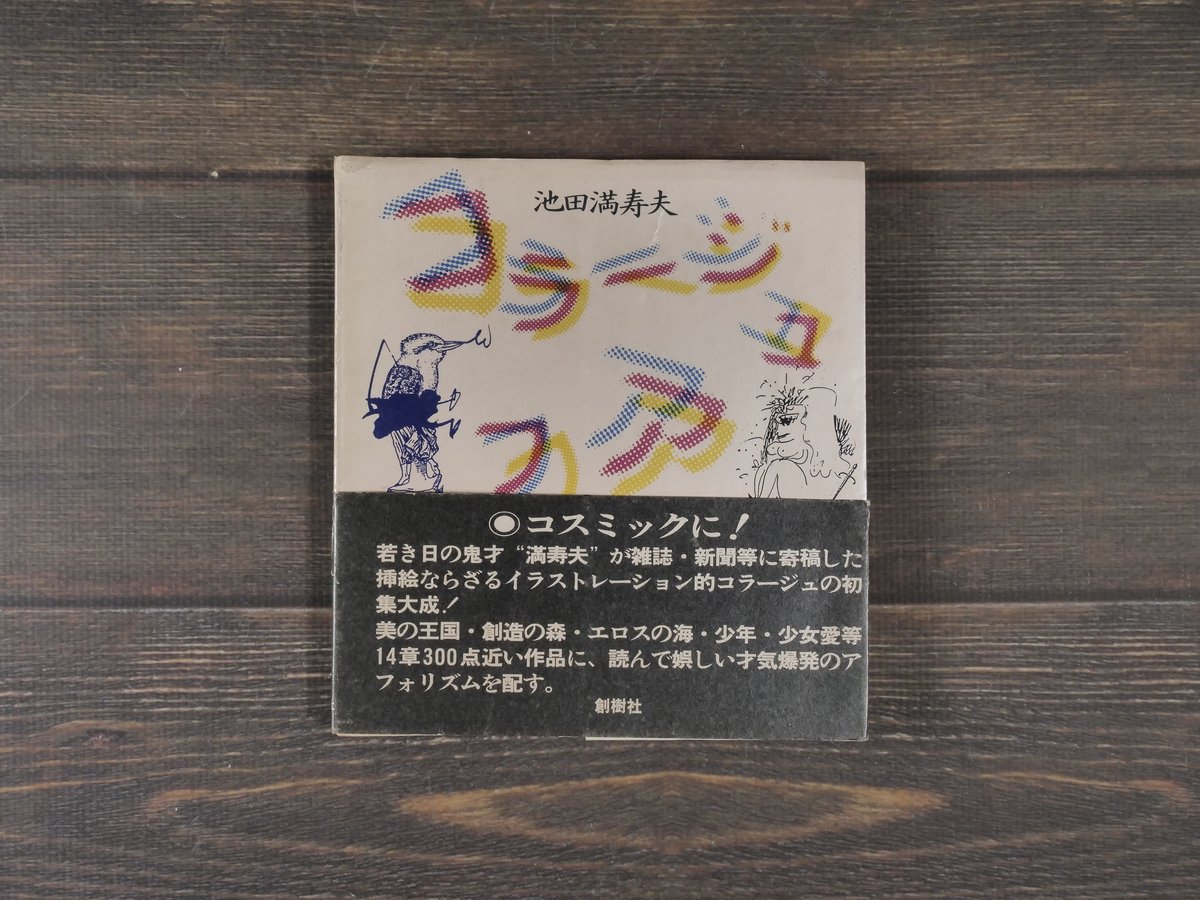 池田満寿夫
コラージュ
アフ
◉コスミックに！
若き日の鬼才“満寿夫”が雑誌・新聞等に寄稿した
挿絵ならざるイラストレーション的コラージュの初
集大成！
美の王国・創造の森・エロスの海・少年・少女愛等
14章300点近い作品に、読んで娯しい才気爆発のア
フォリズムを配す。
創樹社